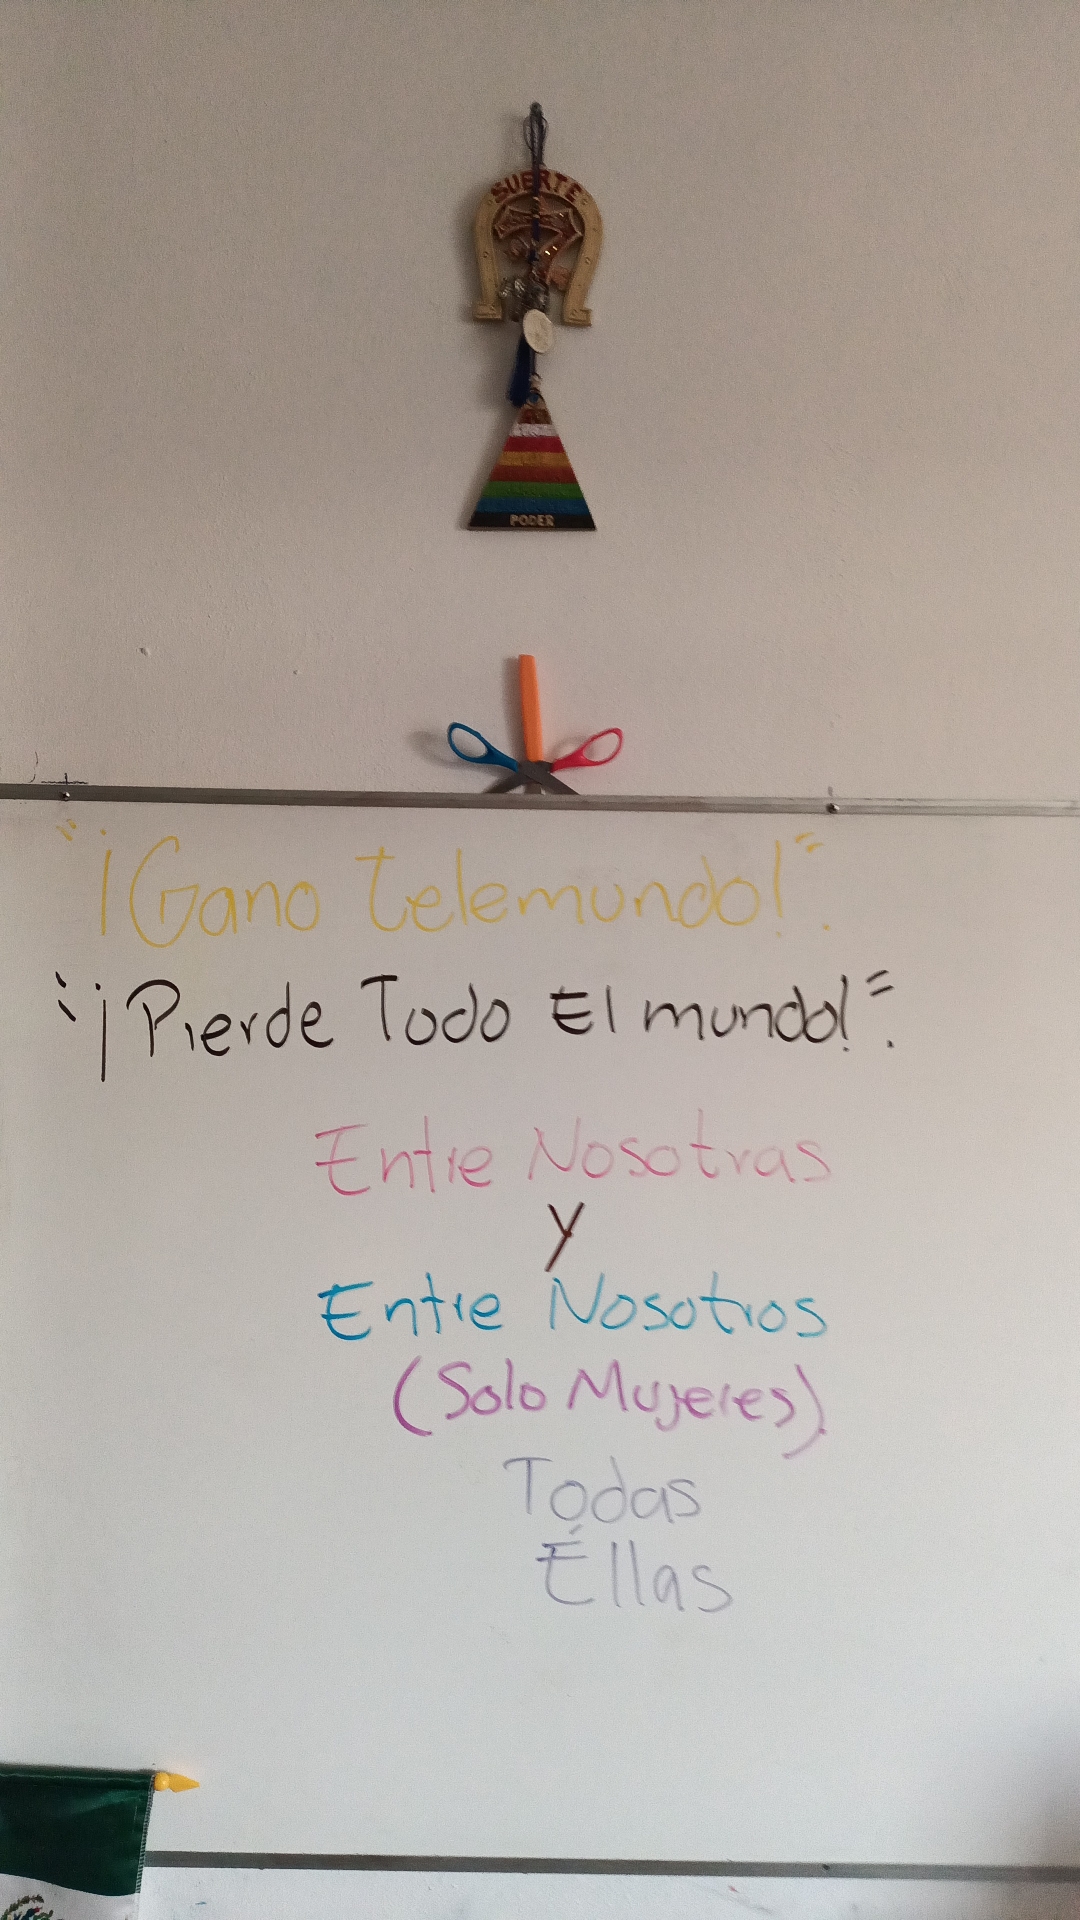 SUERTE
PODER
"¡Gano Telemundo!".
"¡Pierde Todo El mundo!".
Entre Nosotras
y
Entre Nosotros
(Solo Mujeres).
Todas
Éllas